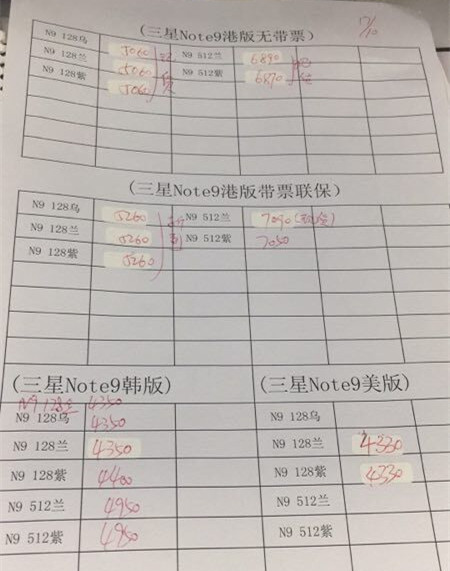 17/10
(三星Note9港版无带票)
N9 128乌 5060 现 N9 512兰 6890
N9 128兰 5060 货 N9 512紫 6870
N9 128紫 5060
(三星Note9港版带票联保)
N9 128乌 5260 N9 512兰 7090(现金)
N9 128兰 5260 到 N9 512紫 7050
N9 128紫 5260
(三星Note9韩版) (三星Note9美版)
N9 128 4350
N9 128乌 4350 N9 128乌
N9 128兰 4350 N9 128兰 4330
N9 128紫 4400 N9 128紫 4330
N9 512兰 4950 N9 512兰
N9 512紫 4950 N9 512紫